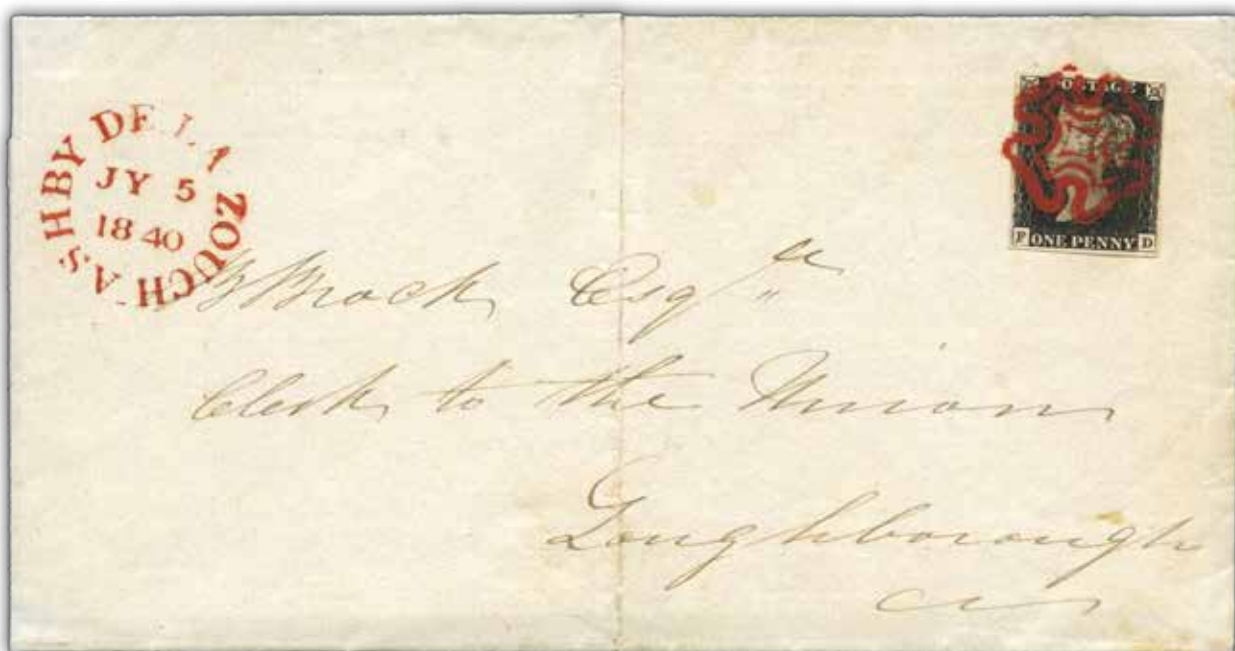 ASHBY DE LA ZOUCH
JY 5
1840
POSTAGE
F ONE PENNY D
Brock Esqre
Clerk to the Union
Loughborough